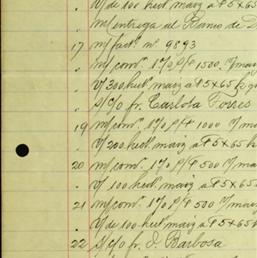 " V/ de 100 hect. maiz a $5×65
" m/ entrega al Banco de
17 m/ fact. nº 9893
" m/ com. 1% p/ $1500 V/ maiz
" V/ 300 hect. maiz a $5×65
" S/C/o fr. Carlota Torres
19 m/ com. 1% p/ $1000 V/ m
" V/ 200 hect. maiz a $5×65 h
20 m/ com. 1% p/ $500 V/ mai
" V/ 100 hect. maiz a $5×65
21 m/ com. 1% p/ $500 V/ ma
" V/ de 100 hect. maiz a $5×65
22 S/C/o fr. J. Barbosa